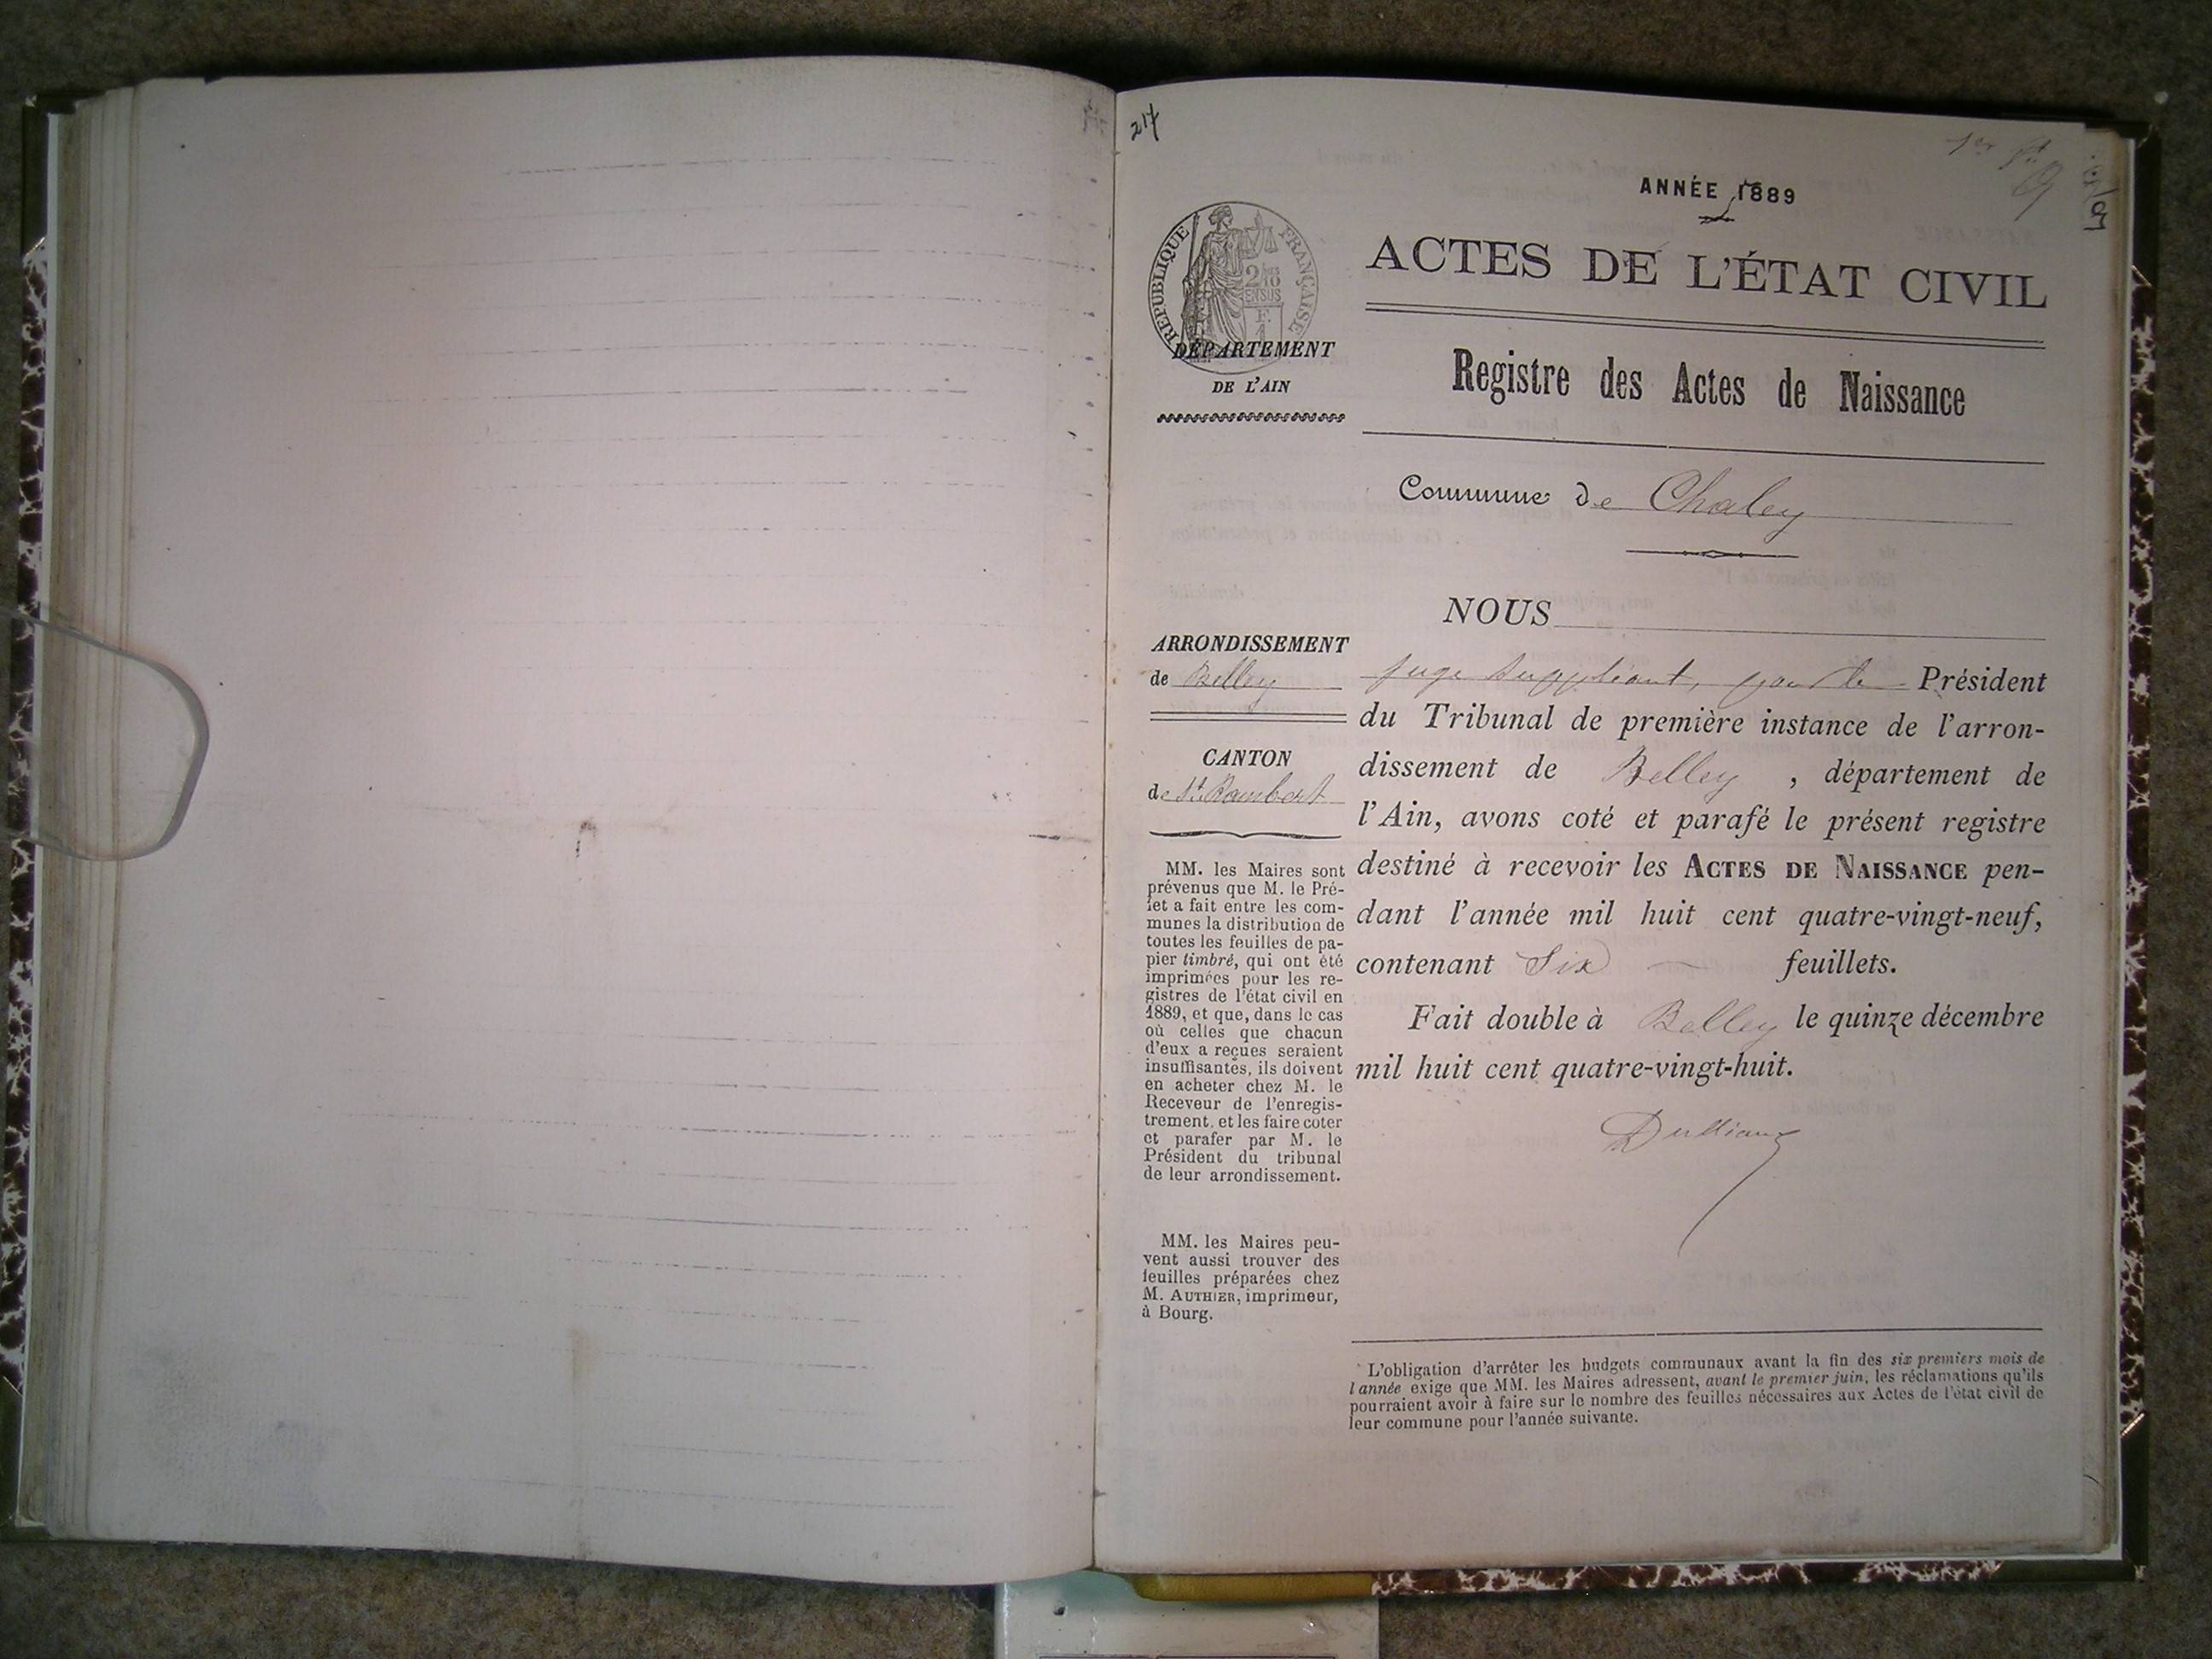 217
ANNÉE 1889
ACTES DE L'ÉTAT CIVIL
RÉPUBLIQUE FRANÇAISE
2/10 EN SUS
DÉPARTEMENT
DE L'AIN
Registre des Actes de Naissance
Commune de Chaley
NOUS
ARRONDISSEMENT
de Belley
CANTON
de St. Rambert
MM. les Maires sont
prévenus que M. le Pré-
fet a fait entre les com-
munes la distribution de
toutes les feuilles de pa-
pier timbré, qui ont été
imprimées pour les re-
gistres de l'état civil en
1889, et que, dans le cas
où celles que chacun
d'eux a reçues seraient
insuffisantes, ils doivent
en acheter chez M. le
Receveur de l'enregis-
trement, et les faire coter
et parafer par M. le
Président du tribunal
de leur arrondissement.
MM. les Maires peu-
vent aussi trouver des
feuilles préparées chez
M. AUTHIER, imprimeur,
à Bourg.
juge suppléant, pour le Président
du Tribunal de première instance de l'arron-
dissement de Belley , département de
l'Ain, avons coté et parafé le présent registre
destiné à recevoir les ACTES DE NAISSANCE pen-
dant l'année mil huit cent quatre-vingt-neuf,
contenant Six feuillets.
Fait double à Belley le quinze décembre
mil huit cent quatre-vingt-huit.
L'obligation d'arrêter les budgets communaux avant la fin des six premiers mois de
l'année exige que MM. les Maires adressent, avant le premier juin, les réclamations qu'ils
pourraient avoir à faire sur le nombre des feuilles nécessaires aux Actes de l'état civil de
leur commune pour l'année suivante.